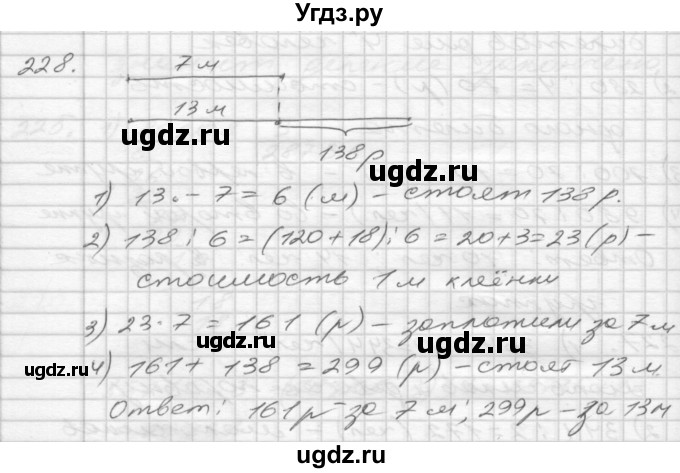 Угдз.ру
228.
7 м
13 м
138 р
ugdz.ru
ugdz.ru
1) 13 - 7 = 6 (м) - стоят 138 р.
2) 138 : 6 = (120 + 18) : 6 = 20 + 3 = 23 (р) -
стоимость 1 м клеёнки
3) 23 · 7 = 161 (р) - заплатили за 7 м
ugdz.ru
ugdz.ru
ugdz.ru
4) 161 + 138 = 299 (р) - стоят 13 м.
Ответ: 161 р - за 7 м; 299 р - за 13 м
ugdz.ru